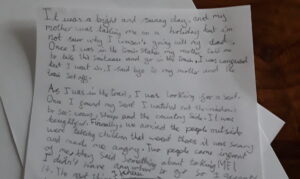 It was a bright and sunny day, and my
mother was taking me on a holiday but im
not sure why I wasn't going with my dad.
Once I was in the train station my mother told me
to take this suitcase and go in the train. I was confused
but I went in, I said bye to my mother and the
train set off.
As I was in the train, I was looking for a seat.
Once I found my seat I watched out the window
to see cows, sheep and the country side. It was
beautiful. Finally, we arrived the people outside
were taking children that weren't theirs it was scary
and made me angry. Two people came infront
of me they said something about taking ME!
I didn't have anywhere to go so I